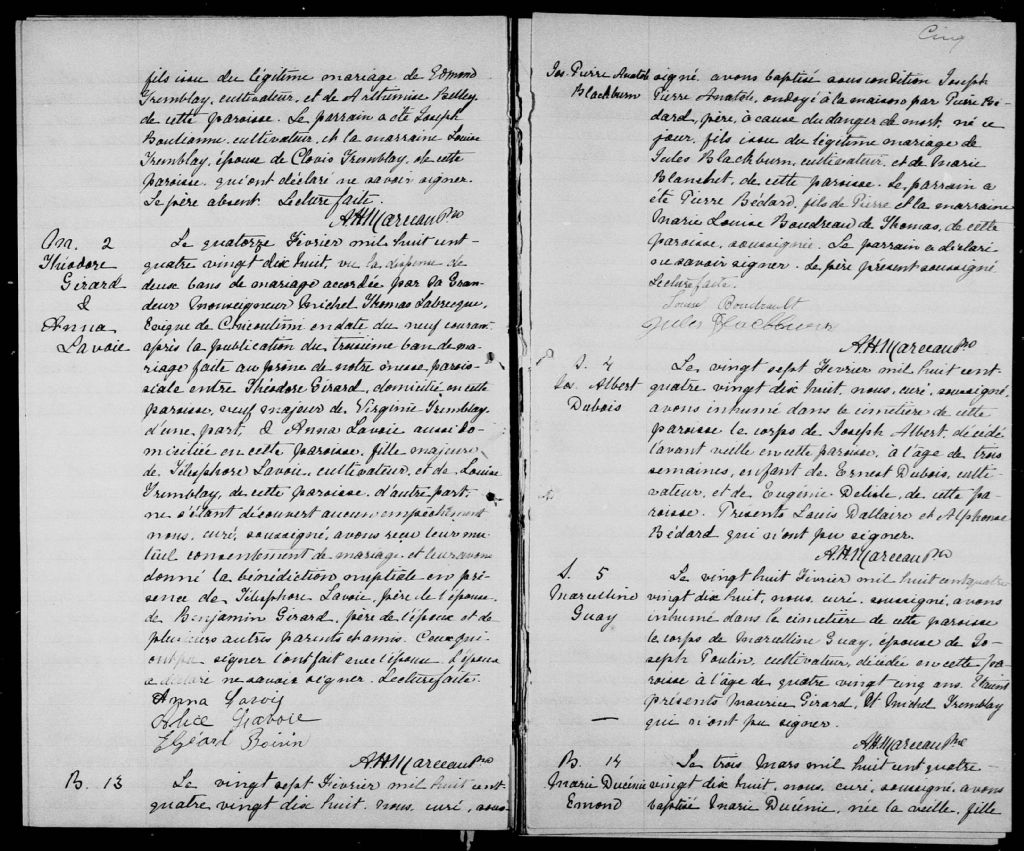 fils issu du légitime mariage de Edmond
Tremblay, cultivateur, et de Arthémise Belley,
de cette paroisse. Le parrain a été Joseph
Boulianne, cultivateur, et la marraine Louise
Tremblay, épouse de Clovis Tremblay, de cette
paroisse, qui ont déclaré ne savoir signer.
Le père absent. Lecture faite.
A.H. Marceau Ptre
M. 2
Théodore
Girard
&
Anna
Lavoie
Le quatorze Février mil huit cent-
quatre vingt dix huit, vu la dispense de
deux bans de mariage accordée par Sa Gran-
deur Monseigneur Michel Thomas Labrecque,
Evêque de Chicoutimi en date du neuf courant
après la publication du troisième ban de ma-
riage faite au prône de notre messe parois-
siale entre Théodore Girard, domicilié en cette
paroisse, veuf majeur de Virginie Tremblay
d'une part, & Anna Lavoie aussi do-
miciliée en cette paroisse, fille majeure
de Télesphore Lavoie, cultivateur, et de Louise
Tremblay, de cette paroisse, d'autre part,
ne s'étant découvert aucun empêchement
nous, curé, soussigné, avons reçu leur mu-
tuel consentement de mariage et leur avons
donné la bénédiction nuptiale en pré-
sence de Télesphore Lavoie, père de l'épouse,
de Benjamin Girard, père de l'époux et de
plusieurs autres parents et amis. Ceux qui
ont pu signer l'ont fait avec l'épouse. L'époux
a déclaré ne savoir signer. Lecture faite.
Anna Lavoie
Alice Lavoie
Elzéard Boivin
A.H. Marceau Ptre
B. 13
Le vingt sept Février mil huit cent
quatre vingt dix huit, nous, curé, sous-
Cinq
Jos. Pierre Anatole
Blackburn
signé, avons baptisé sous condition Joseph
Pierre Anatole, ondoyé à la maison par Pierre Bé-
dard, père, à cause du danger de mort, né ce
jour, fils issu du légitime mariage de
Jules Blackburn, cultivateur, et de Marie
Blanchet, de cette paroisse. Le parrain a
été Pierre Bédard, fils de Pierre et la marraine
Marie Louise Boudreau de Thomas, de cette
paroisse, soussignée. Le parrain a déclaré
ne savoir signer. Le père présent soussigné
Lecture faite.
Louise Boudreault
Jules Blackburn
A.H. Marceau Ptre
S. 4
Jos. Albert
Dubois
Le vingt sept Février mil huit cent
quatre vingt dix huit, nous, curé, soussigné,
avons inhumé dans le cimetière de cette
paroisse le corps de Joseph Albert, décédé
l'avant veille en cette paroisse, à l'âge de trois
semaines, enfant de Ernest Dubois, culti-
vateur, et de Eugénie Delisle, de cette pa-
roisse. Présents Louis Dallaire et Alphonse
Bédard qui n'ont pu signer.
A.H. Marceau Ptre
S. 5
Marcelline
Guay
Le vingt huit Février mil huit cent quatre
vingt dix huit, nous, curé, soussigné, avons
inhumé dans le cimetière de cette paroisse
le corps de Marcelline Guay, épouse de Jo-
seph Poulin, cultivateur, décédée en cette pa-
roisse à l'âge de quatre vingt cinq ans. Etaient
présents Maurice Girard, et Michel Tremblay
qui n'ont pu signer.
A.H. Marceau Ptre
B. 14
Marie Ducénie
Emond
Le trois Mars mil huit cent quatre-
vingt dix huit, nous, curé, soussigné, avons
baptisé Marie Ducénie, née la veille, fille